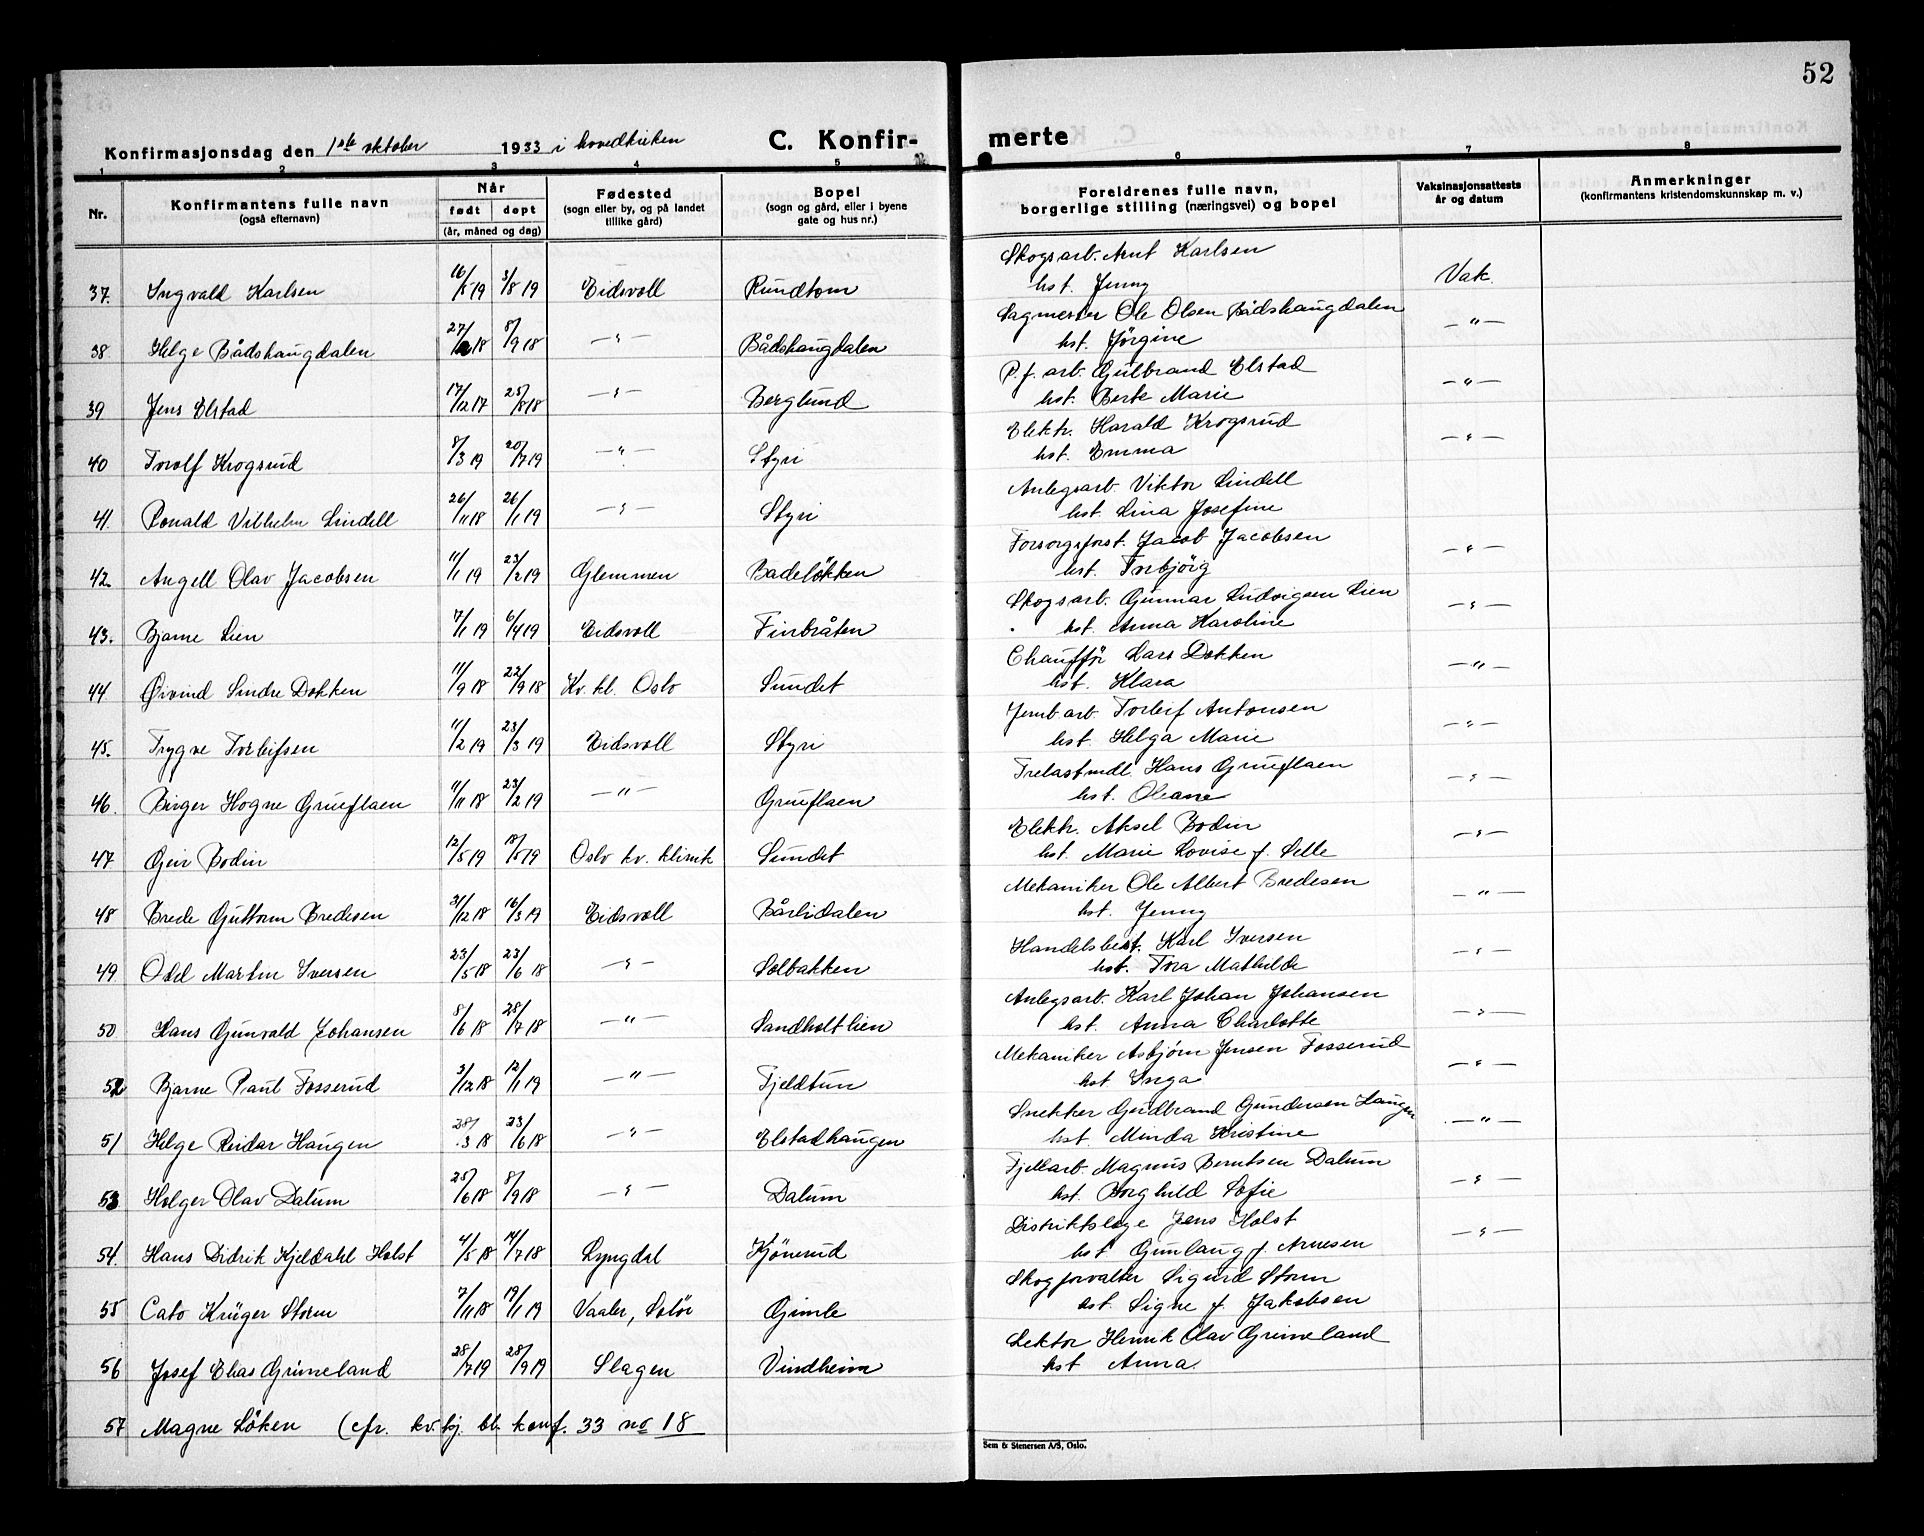 52
Konfirmasjonsdag den 1ste oktober 1933 i hovedkirken C. Konfir- merte
1 2 3 4 5 6 7 8
Nr. Konfirmantens fulle navn (også efternavn) Når født døpt (år, måned og dag) Fødested (sogn eller by, og på landet tillike gård) Bopel (sogn og gård, eller i byene gate og hus nr.) Foreldrenes fulle navn, borgerlige stilling (næringsvei) og bopel Vaksinasjonsattests år og datum Anmerkninger (konfirmantens kristendomskunnskap m. v.)
Skogsarb. Arnt Karlsen
37. Ingvald Karlsen 16/5 19 3/8 19 Eidsvoll Rundtom hst. Jenny Vak.
Sagmester Ole Olsen Bådshaugdalen
38 Helge Bådshaugdalen 27/ 18 8/9 18 —"— Bådshaugdalen hst. Jørgine —"—
P.f. arb. Gulbrand Elstad
39 Jens Elstad 17/12 17 25/8 18 —"— Berglund hst. Berte Marie —"—
Elektr. Harald Krogsrud
40 Torolf Krogsrud 8/3 19 20/7 19 —"— Styri hst. Emma —"—
Anlegsarb. Viktor Lindell
41. Ronald Vilhelm Lindell 26/11 18 26/1 19 —"— Styri hst. Lina Josefine
Forsorgsforst. Jacob Jacobsen
42. Angell Olav Jacobsen 11/1 19 23/2 19 Glemmen Badeløkken hst. Torbjørg —"—
Skogsarb. Gunnar Ludvigsen Lien
43. Bjarne Lien 7/1 19 6/4 19 Eidsvoll Finbråten hst. Anna Karoline —"—
Chauffør Lars Dokken
44 Øivind Sindre Dokken 11/9 18 22/9 18 Kv. kl. Oslo Sundet hst. Klara —"—
Jernb arb. Torleif Antonsen
45. Trygve Torleifsen 11/2 19 23/3 19 Eidsvoll Styri hst. Helga Marie —"—
Trelasthndl. Hans Grueflaen
46. Birger Hogne Grueflaen 11/11 18 23/2 19 —"— Grueflaen hst. Oleane —"—
Elektr. Aksel Bodin
47 Geir Bodin 12/5 19 18/5 19 Oslo kv. klinik Sundet hst. Marie Lovise f. Lelle —"—
Mekaniker Ole Albert Bredesen
48 Brede Guttorm Bredesen 31/12 18 16/3 19 Eidsvoll Bårlidalen hst. Jenny —"—
Handelsbest. Karl Iversen
49. Odd Martin Iversen 23/5 18 23/6 18 —"— Solbakken hst. Tora Mathilde —"—
Anlegsarb. Karl Johan Johansen
50. Hans Gunvald Johansen 8/6 18 28/7 18 —"— Sandholtlien hst. Anna Charlotte —"—
Mekaniker Asbjørn Jensen Fosserud
52 Bjarne Paul Fosserud 3/12 18 12/1 19 —"— Fjeldtun hst Inga —"—
Snekker Gudbrand Gundersen Haugen
51 Helge Reidar Haugen 28/3 18 23/6 18 —"— Elstadhaugen hst. Minda Kristine —"—
Fjellarb. Magnus Berntsen Dalum
53 Holger Olav Dalum 25/6 18 8/9 18 —"— Dalum hst. Borghild Sofie —"—
Distriktslege Jens Holst
54. Hans Didrik Kjeldahl Holst 4/5 18 14/7 18 Lyngdal Kjønerud hst. Gunlaug f. Arnesen —"—
Skogforvalter Sigurd Storm
55 Cato Krüger Storm 7/11 18 19/1 19 Vaaler, Solør Gimle hst. Signe f. Jakobsen
Lektor Henrik Olav Grimeland
56 Josef Elias Grimeland 28/7 19 28/9 19 Slagen Vindheim hst Anna.
57 Magne Løken (cfr. kv. bj. bl. konf. 33 no 18
Sem & Stenersen A/S, Oslo.